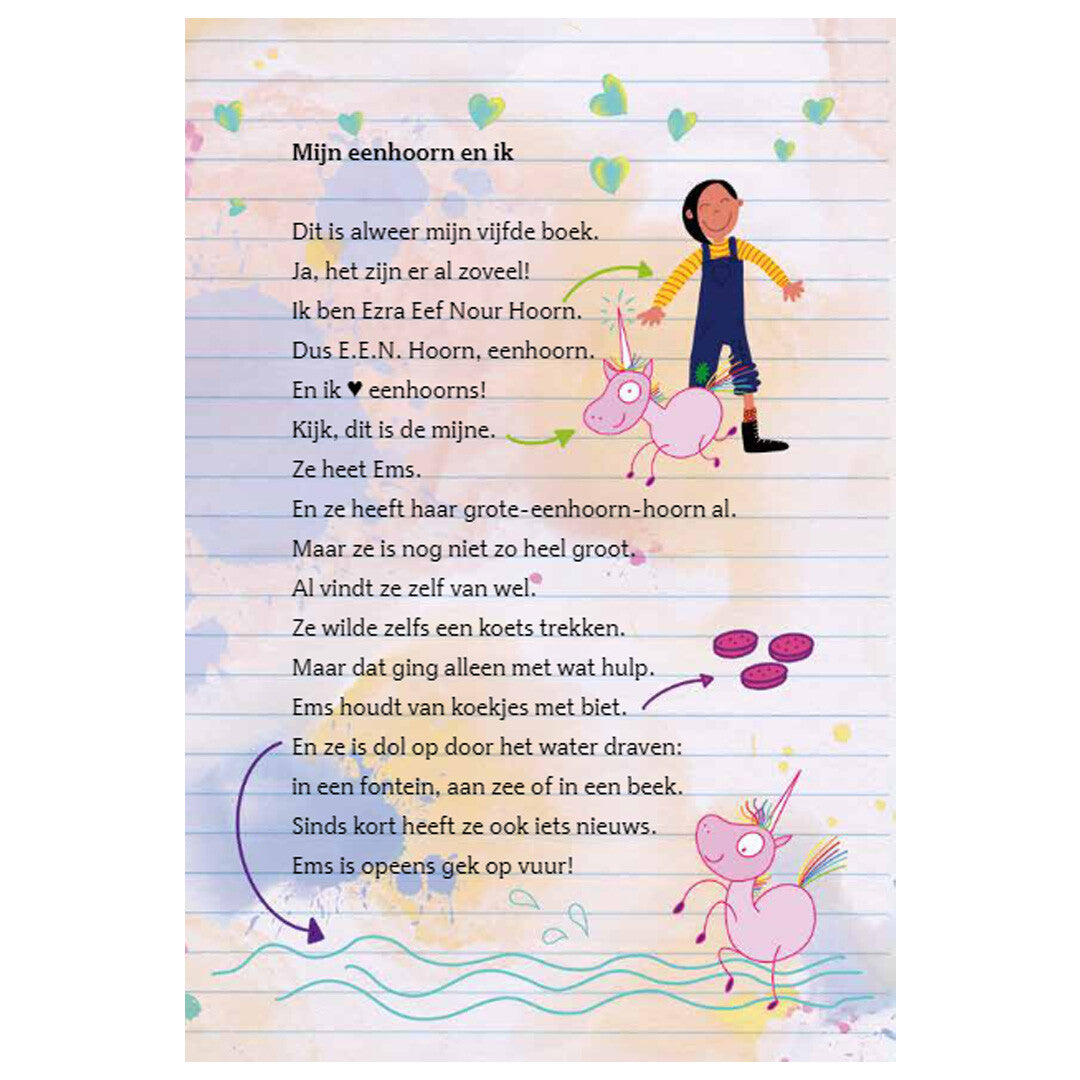 Mijn eenhoorn en ik
Dit is alweer mijn vijfde boek.
Ja, het zijn er al zoveel!
Ik ben Ezra Eef Nour Hoorn.
Dus E.E.N. Hoorn, eenhoorn.
En ik ♥ eenhoorns!
Kijk, dit is de mijne.
Ze heet Ems.
En ze heeft haar grote-eenhoorn-hoorn al.
Maar ze is nog niet zo heel groot.
Al vindt ze zelf van wel.
Ze wilde zelfs een koets trekken.
Maar dat ging alleen met wat hulp.
Ems houdt van koekjes met biet.
En ze is dol op door het water draven:
in een fontein, aan zee of in een beek.
Sinds kort heeft ze ook iets nieuws.
Ems is opeens gek op vuur!